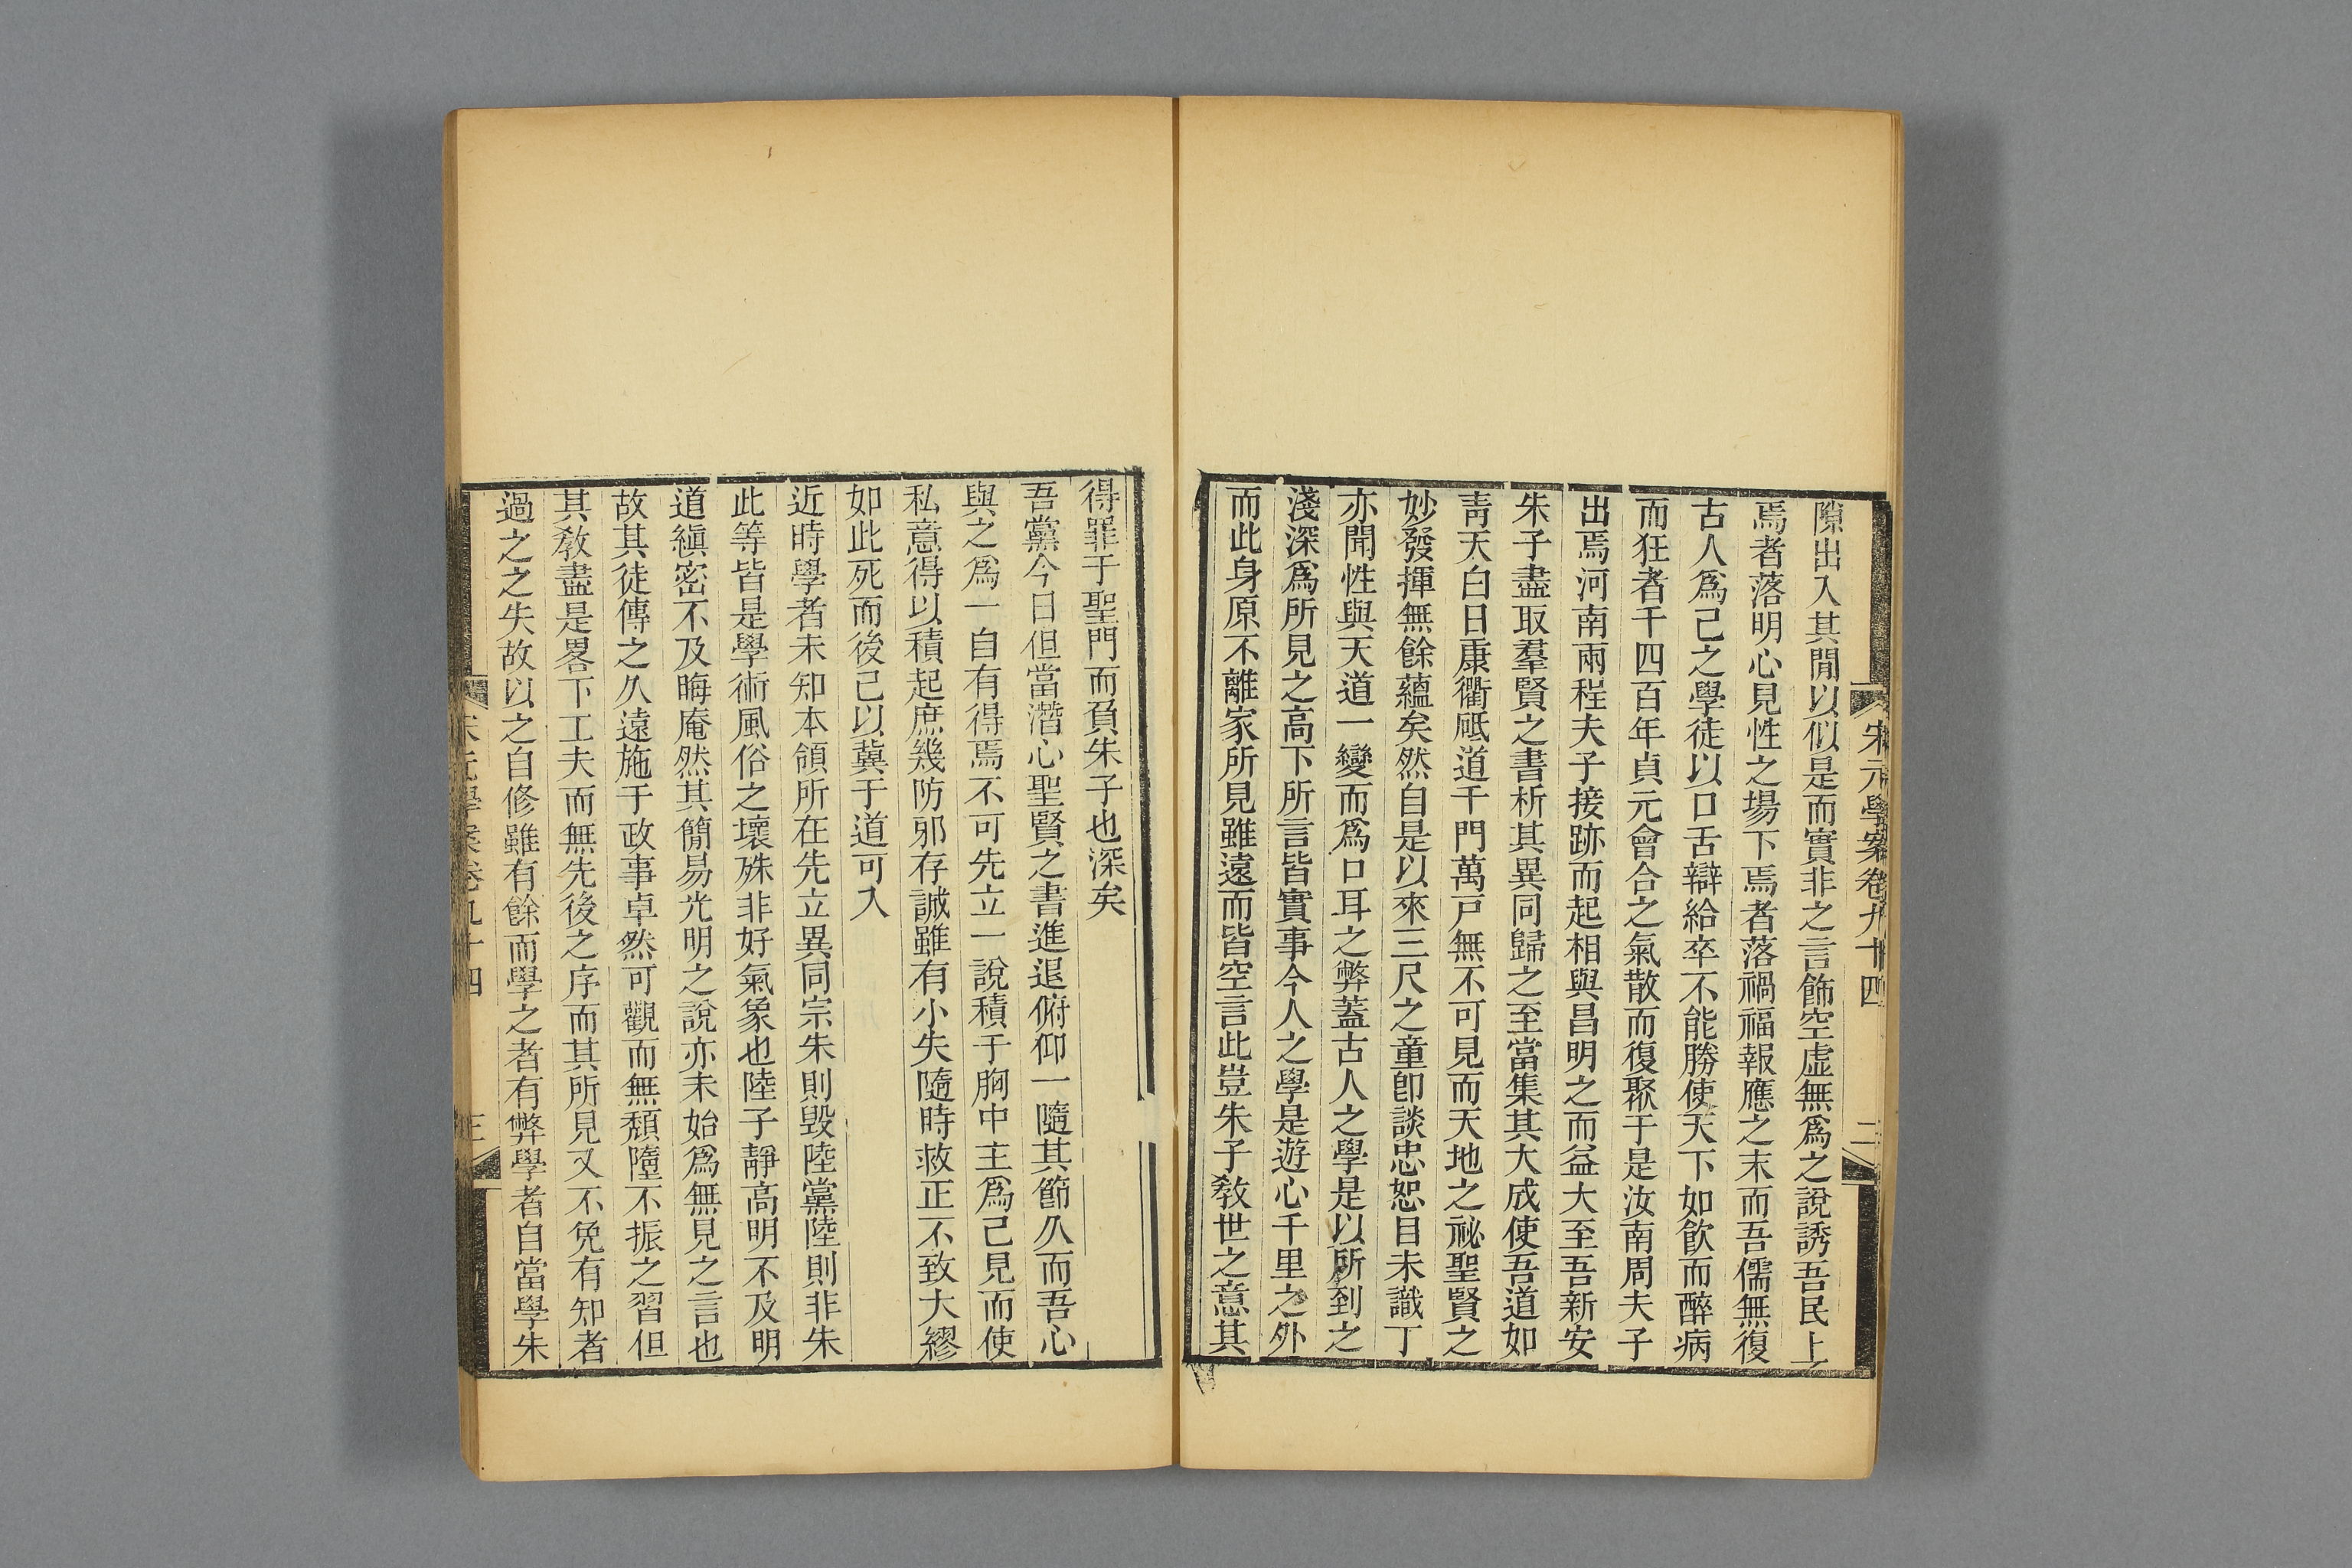 宋元學案卷九十四 二
隙出入其閒以似是而實非之言飾空虛無爲之說誘吾民上
焉者落明心見性之場下焉者落禍福報應之末而吾儒無復
古人爲己之學徒以口舌辯給卒不能勝使天下如飮而醉病
而狂者千四百年貞元會合之氣散而復聚于是汝南周夫子
出焉河南兩程夫子接跡而起相與昌明之而益大至吾新安
朱子盡取羣賢之書析其異同歸之至當集其大成使吾道如
靑天白日康衢砥道千門萬戸無不可見而天地之祕聖賢之
妙發揮無餘蘊矣然自是以來三尺之童卽談忠恕目未識丁
亦聞性與天道一變而爲口耳之弊蓋古人之學是以所到之
淺深爲所見之高下所言皆實事今人之學是遊心千里之外
而此身原不離家所見雖遠而皆空言此豈朱子敎世之意其
得罪于聖門而負朱子也深矣
吾黨今日但當潛心聖賢之書進退俯仰一隨其節久而吾心
與之爲一自有得焉不可先立一說積于胸中主爲己見而使
私意得以積起庶幾防邪存誠雖有小失隨時救正不致大繆
如此死而後已以冀于道可入
近時學者未知本領所在先立異同宗朱則毀陸黨陸則非朱
此等皆是學術風俗之壞殊非好氣象也陸子靜高明不及明
道縝密不及晦庵然其簡易光明之說亦未始爲無見之言也
故其徒傳之久遠施于政事卓然可觀而無頹墮不振之習但
其敎盡是畧下工夫而無先後之序而其所見又不免有知者
過之之失故以之自修雖有餘而學之者有弊學者自當學朱
宋元學案卷九十四 三